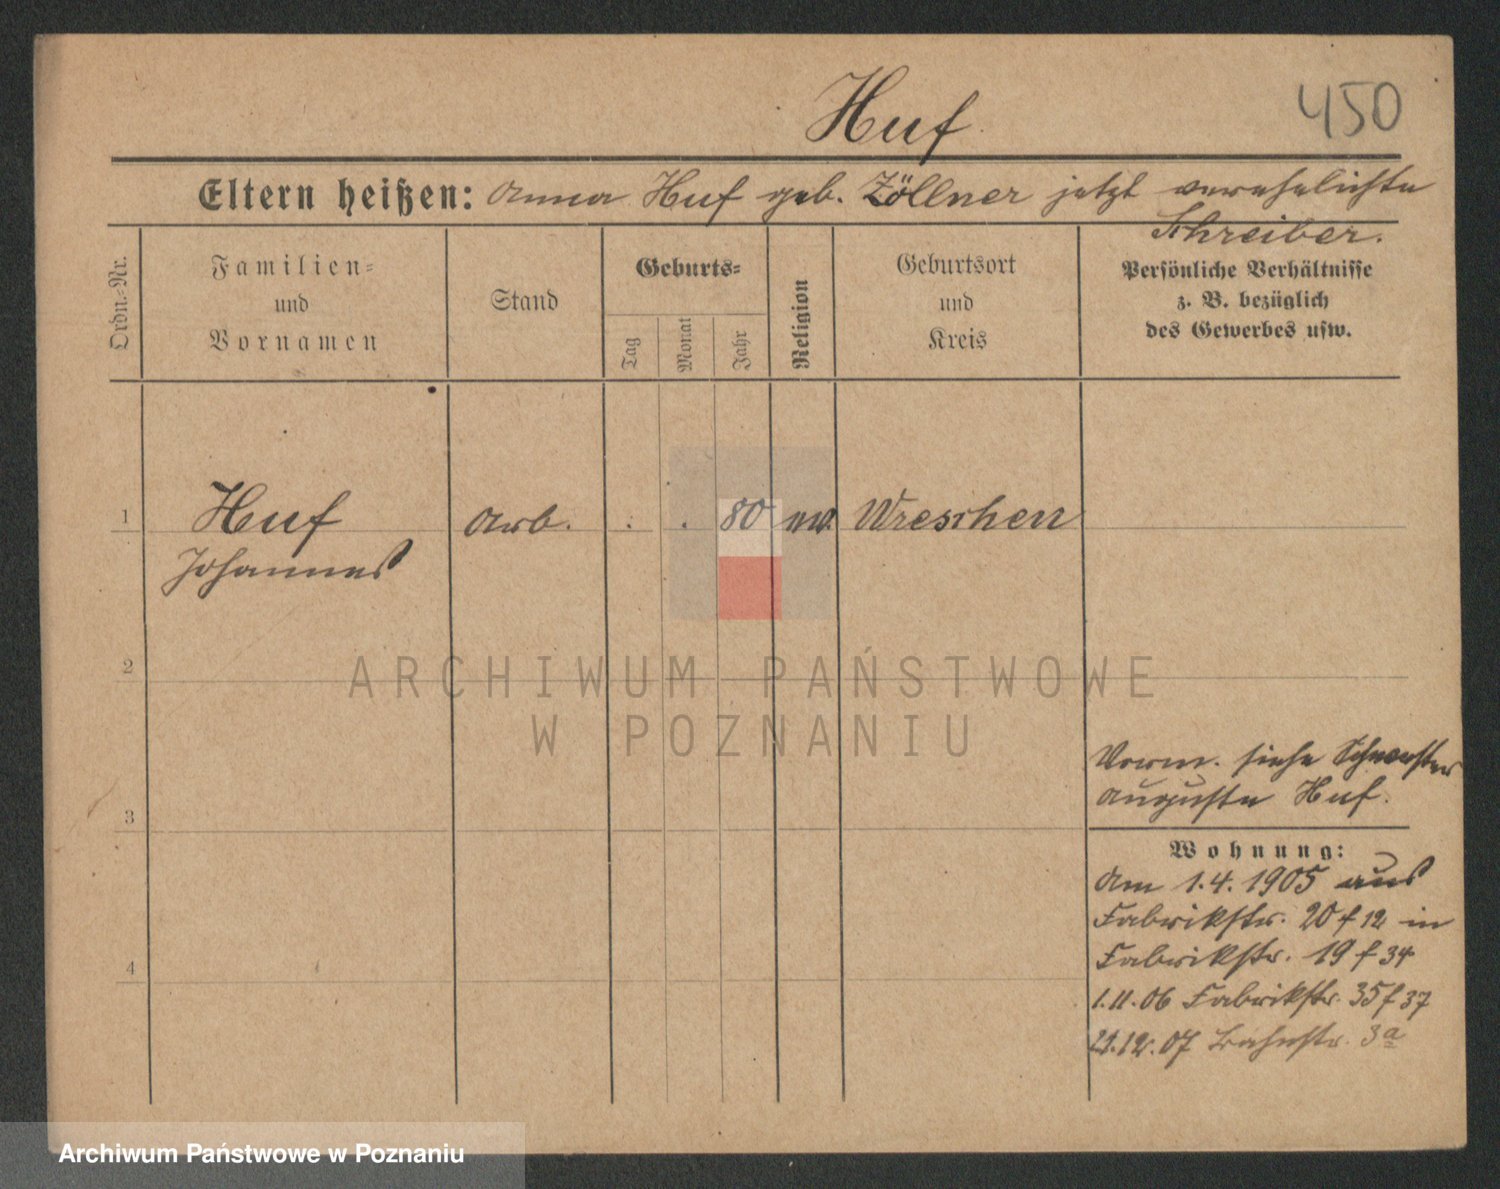 Huf
450
Eltern heißen: Anna Huf geb. Zöllner jetzt verehelichte
Schreiber.
Ordn.-Nr.
Familien-
und
Vornamen
Stand
Geburts-
Tag
Monat
Jahr
Religion
Geburtsort
und
Kreis
Persönliche Verhältnisse
z. B. bezüglich
des Gewerbes usw.
1
Huf
Johannes
Arb.
80
ev.
Wreschen
2
ARCHIWUM PAŃSTWOWE
W POZNANIU
3
Vorm. siehe Schwester
Auguste Huf.
Wohnung:
Am 1.4.1905 aus
Fabrikstr. 20 f 12 in
Fabrikstr. 19 f 34
4
1.11.06 Fabrikstr. 35 f 37
12.07 Bahnstr. 3a
Archiwum Państwowe w Poznaniu